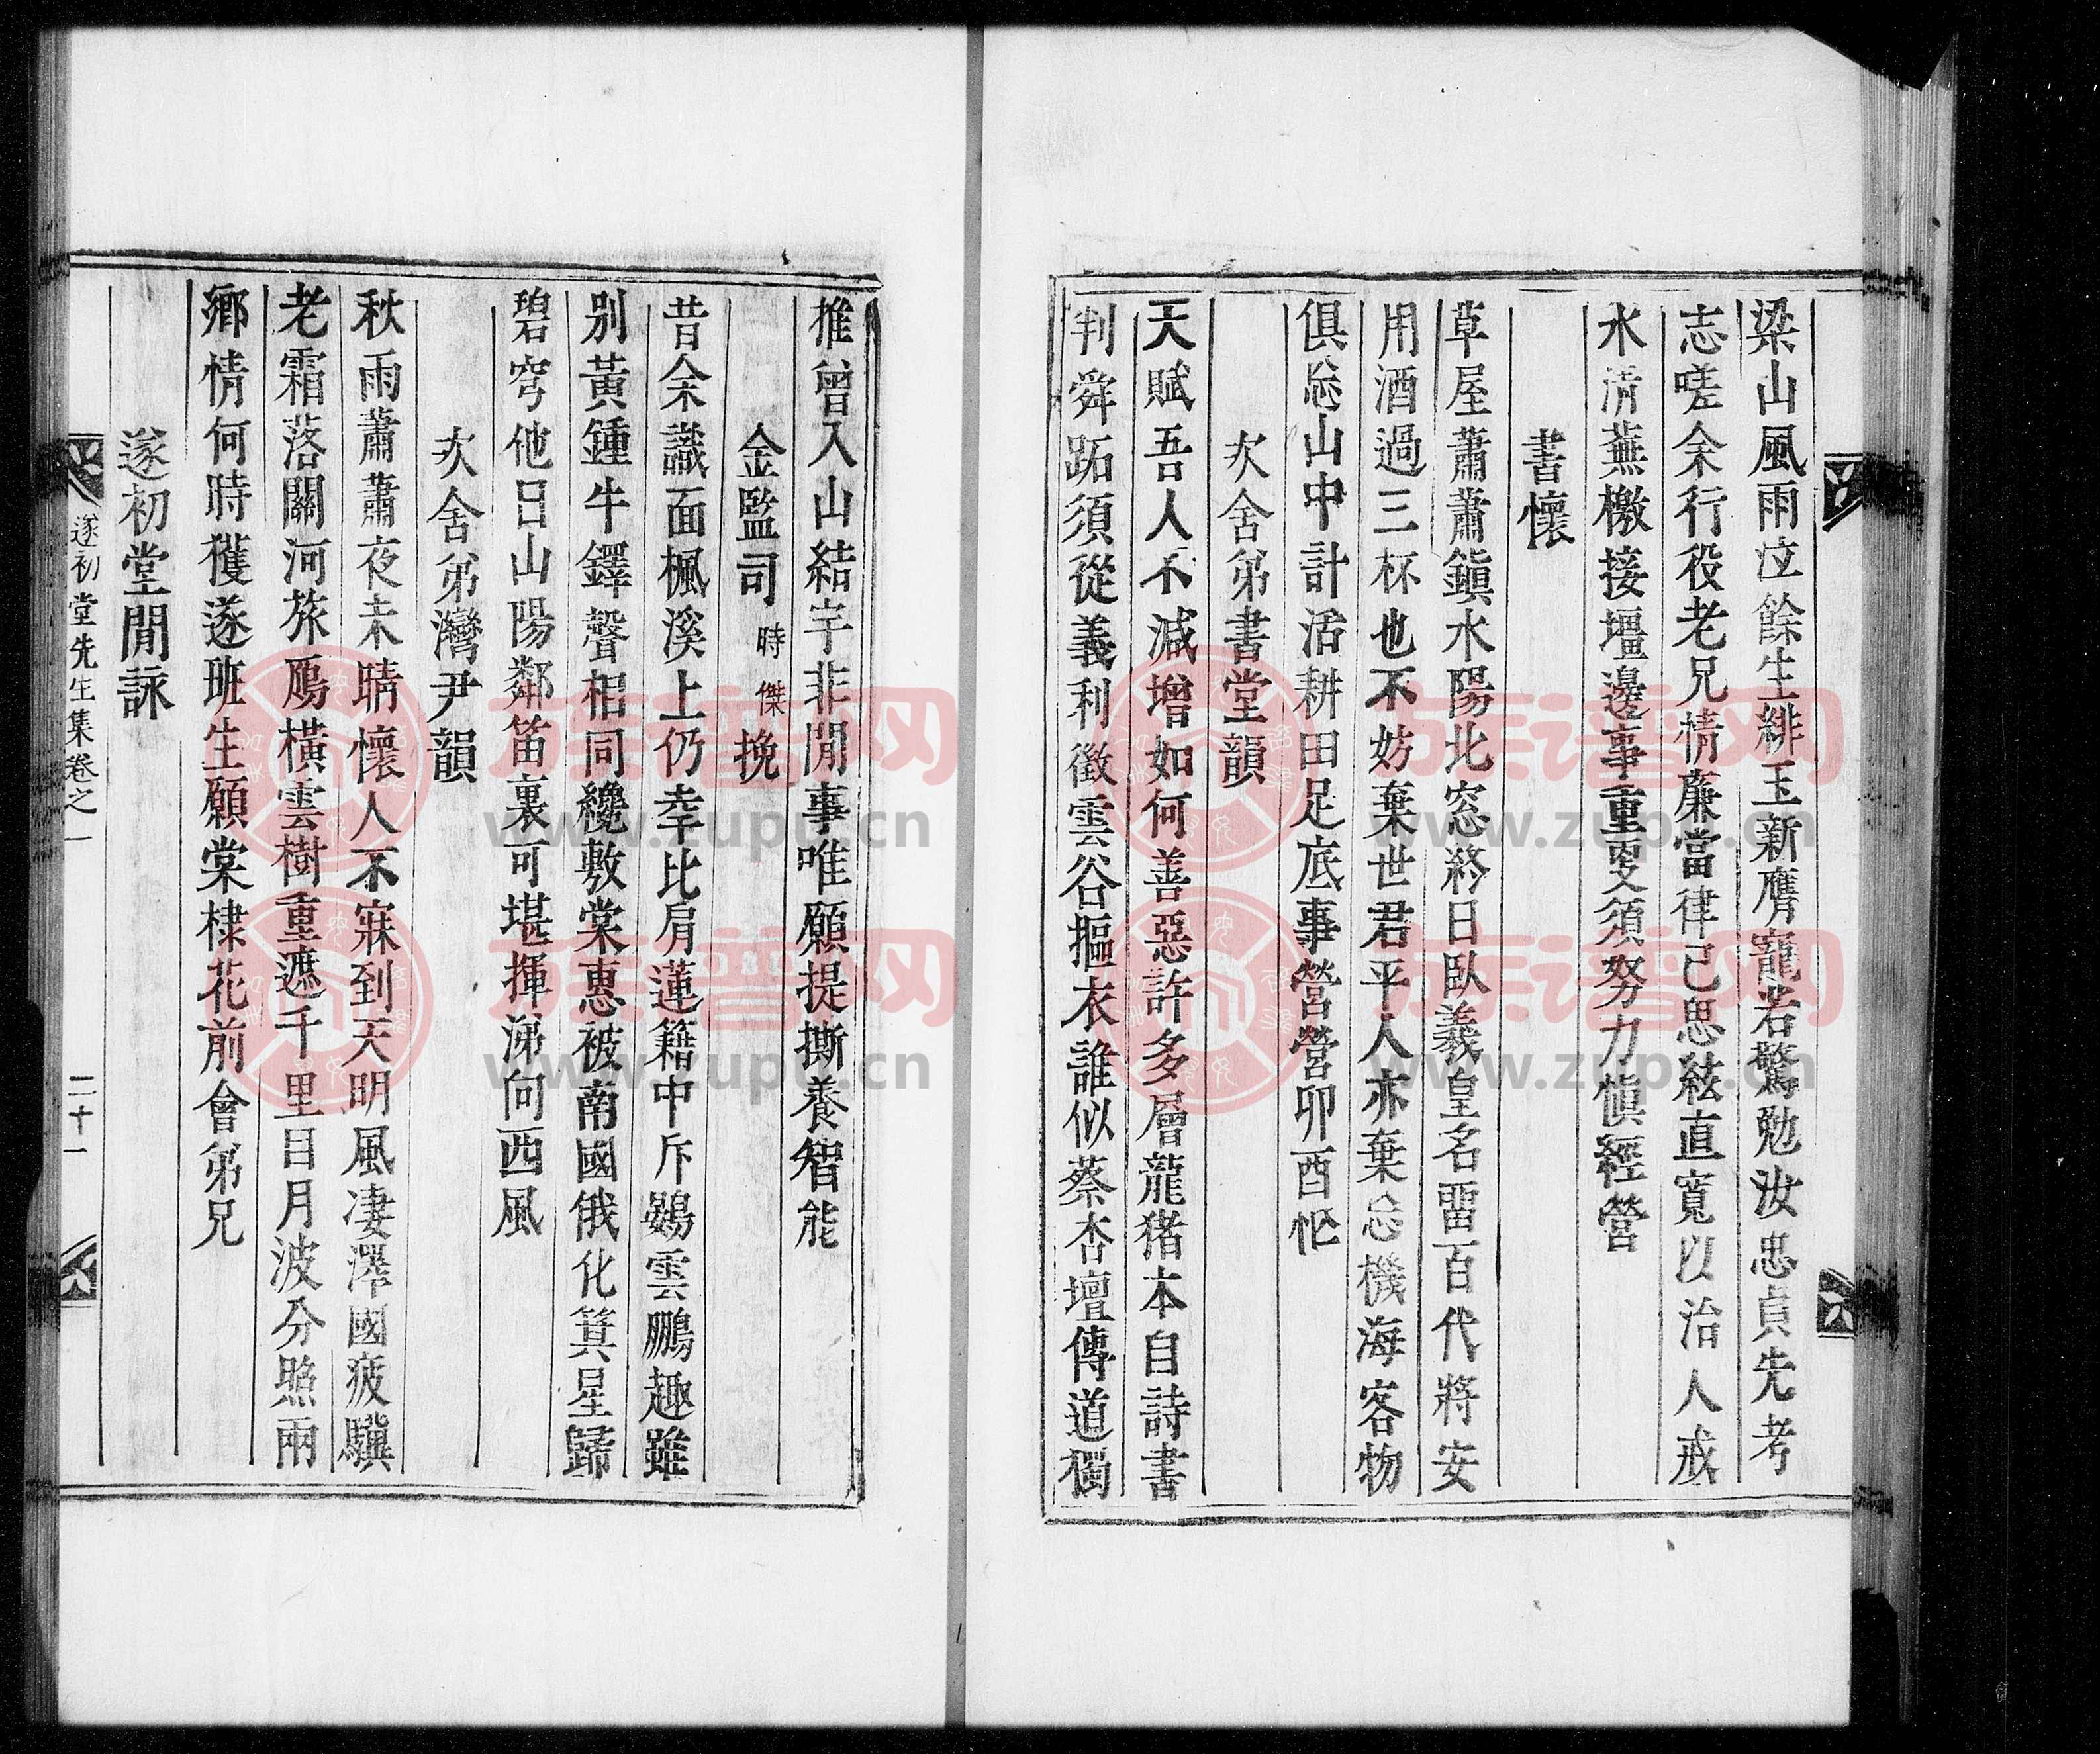 梁山風雨泣餘生緋玉新膺寵若驚勉汝忠貞先考
志嗟余行役老兄情廉當律己思絃直寬以治人戒
水清蕪檄接壇邊事重更須努力愼經營
書懷
草屋蕭蕭鎭水陽北窓終日臥羲皇名畱百代將安
用酒過三杯也不妨棄世君平人亦棄忘機海客物
俱忘山中計活耕田足底事營營卯酉忙
次舍弟書堂韻
天賦吾人不減增如何善惡許多層龍猪本自詩書
判舜跖須從義利徵雲谷摳衣誰似蔡杏壇傳道獨
推曾入山結宇非閒事唯願提撕養智能
金監司 時傑 挽
昔余識面楓溪上仍幸比肩蓮籍中斥鷃雲鵬趣雖
別黃鍾牛鐸聲相同纔敷棠惠被南國俄化箕星歸
碧穹他日山陽鄰笛裏可堪揮涕向西風
次舍弟灣尹韻
秋雨蕭蕭夜未晴懷人不寐到天明風凄澤國疲驥
老霜落關河旅鴈橫雲樹重遮千里目月波分照兩
鄕情何時穫遂班生願棠棣花前會弟兄
遂初堂閒詠
遂初堂先生集卷之一 二十一
族谱网
www.zupu.cn
族谱网
www.zupu.cn
族谱网
www.zupu.cn
族谱网
www.zupu.cn